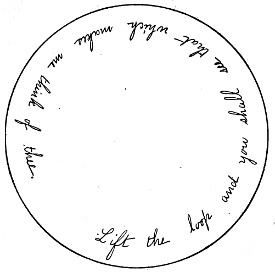 Lift the loop and you shall see that which makes me think of thee.